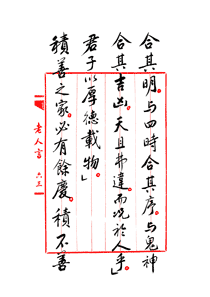 合其明。与四時合其序。与鬼神
合其吉凶。天且弗違。而况於人乎」
君子以厚德載物」
積善之家。必有餘慶。積不善
老人言 六三